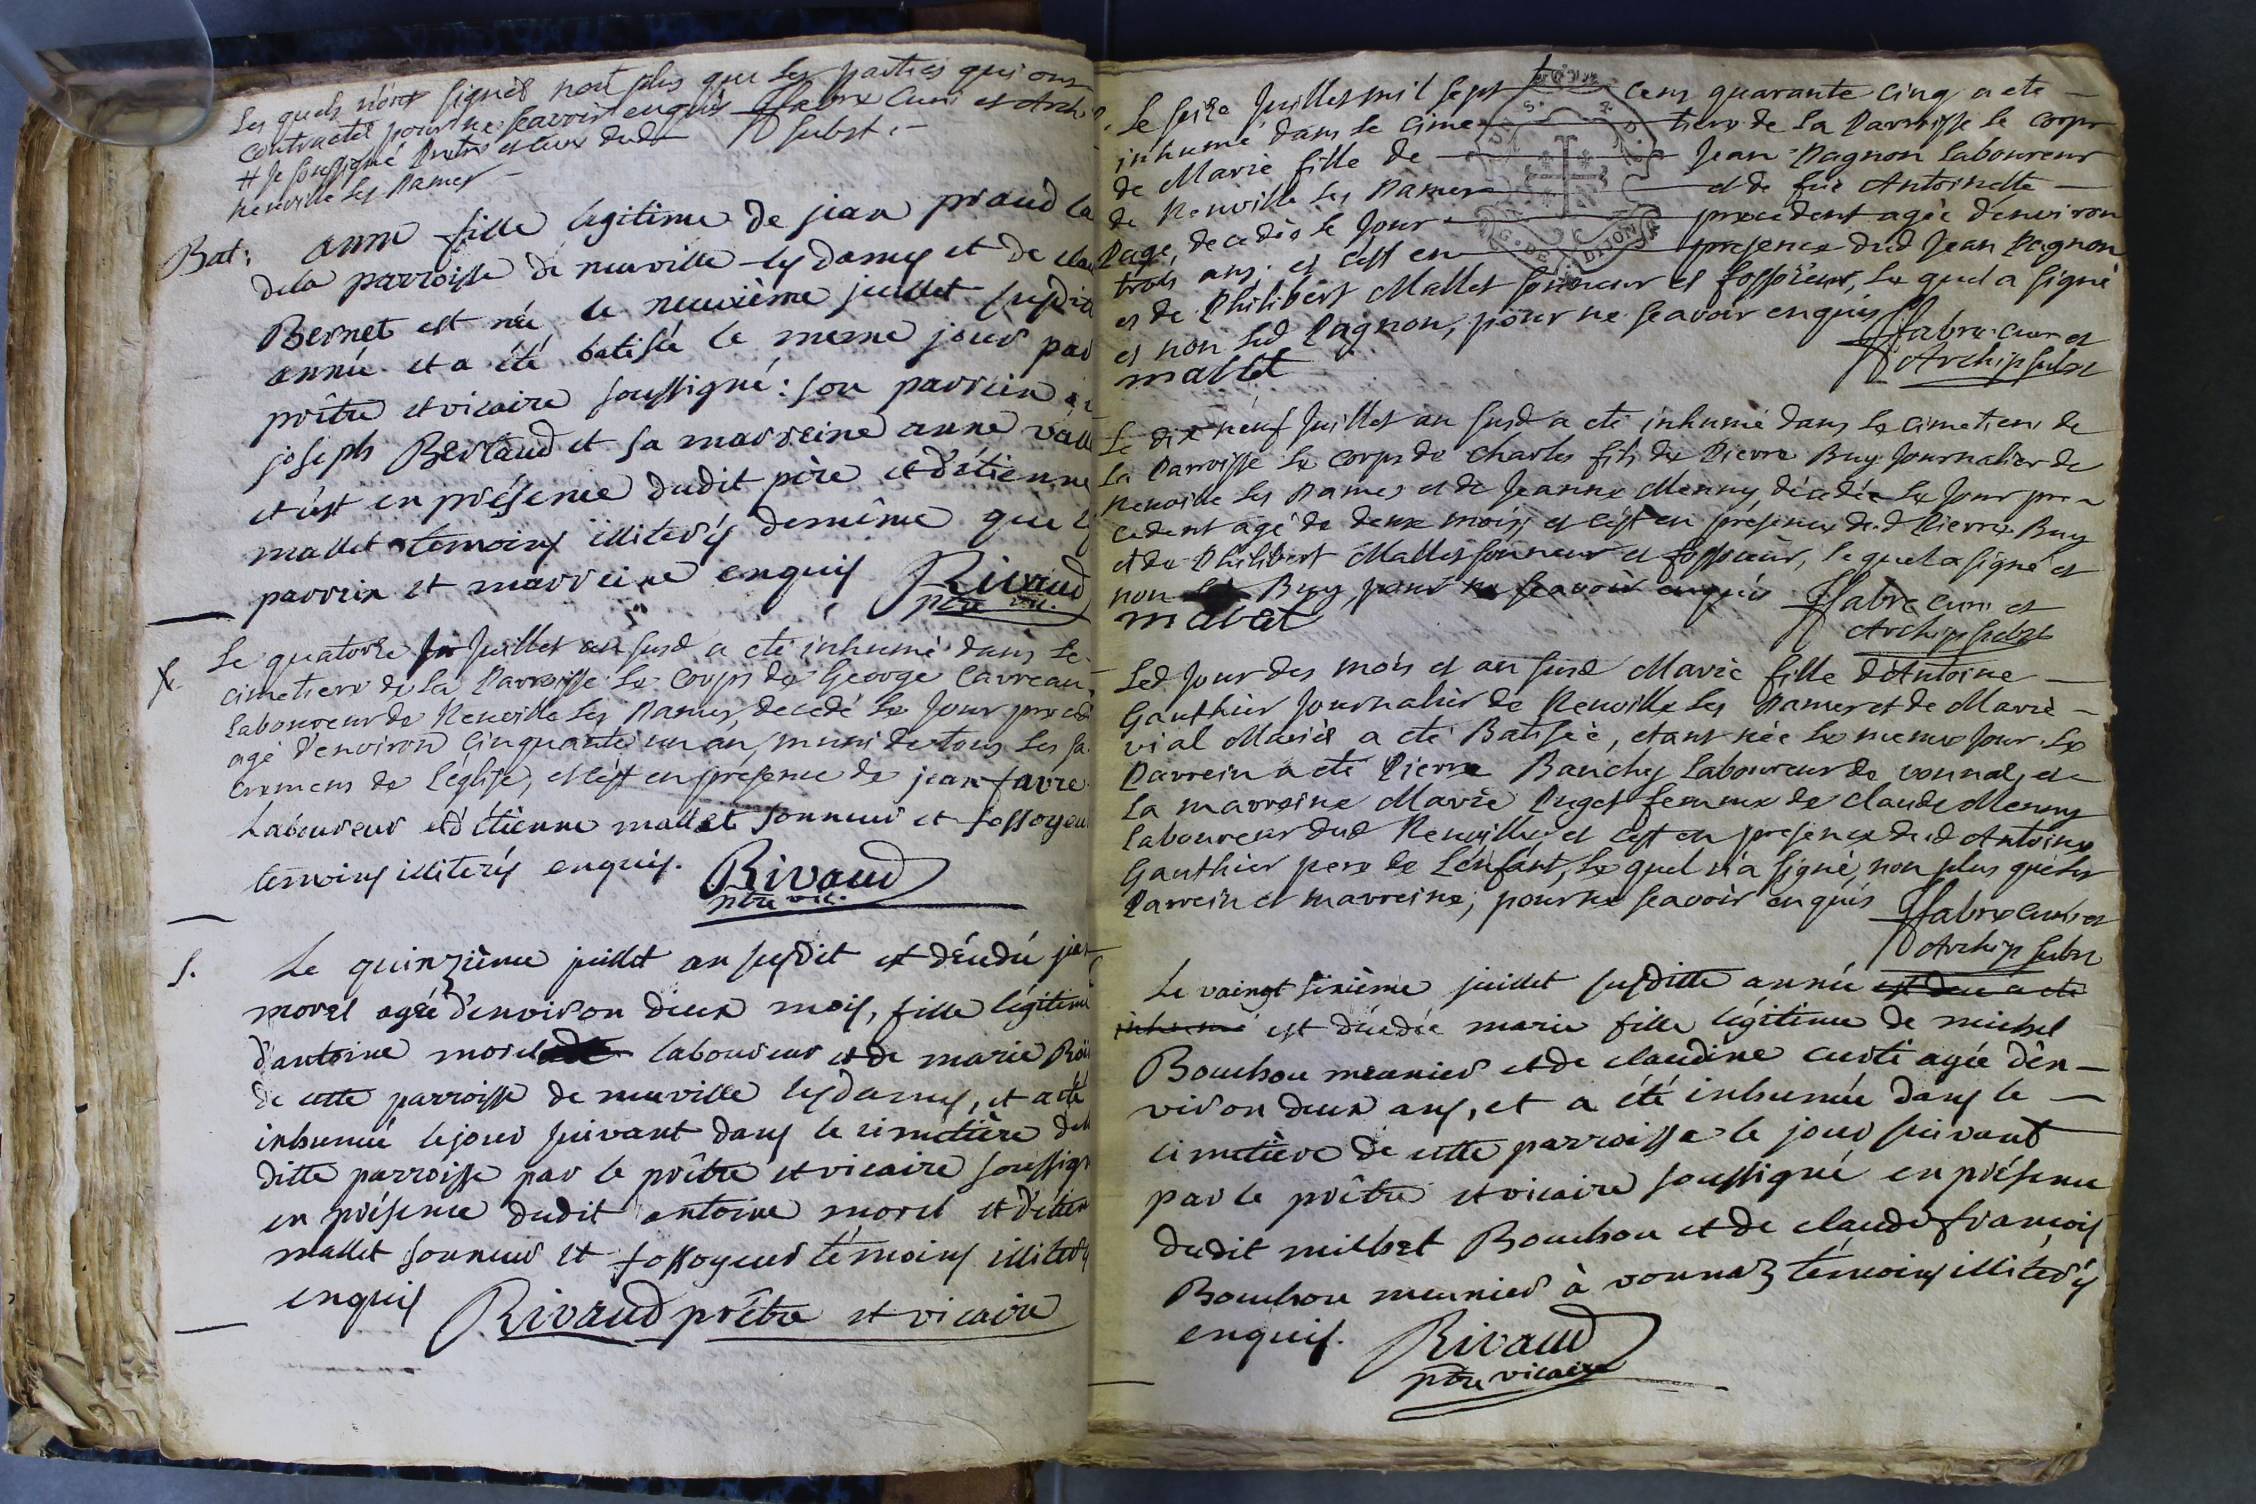 Les quels n'ont signés non plus que les parties qui ont
contracté pour ne scavoir enquis ffabre Curé et Arch.
# Je soussigné subst.
neuville les Dames
Bat: anne fille legitime de jean praud la
dela parroisse de neuville lesdames et de clau
Bernet est née le neuvième juillet susdit
année et a été batisée le meme jour par
prêtre et vicaire soussigné: son parrein
joseph Bertaud et sa marreine anne
et c'est en présence dudit père et d'étienne
mallet temoins illiterés demême que
parrein et marreine enquis Rivaud
ptre vic.
Le quatorze Juillet an susd a eté inhumé dans le
cimetiere de la Parroisse le corps de George Carreau
Laboureur de Neuville les Dames, decedé le Jour preced
agé d'environ cinquante un an, muni de tous les sa
cremens de l'église, et c'est en présence de jean favre
Laboureur et d'étienne mallet sonneur et fossoyeur
temoins illiterés enquis. Rivaud
ptre vic.
S. Le quinzième juillet an susdit est décédé
morel agée d'environ deux mois, fille légitime
d'antoine morel laboureur et de marie
de cette parroisse de neuville lesdames, et a été
inhumée lejour suivant dans le cimetière
ditte parroisse par le prêtre et vicaire soussign
en présence dudit antoine morel et d'étien
mallet sonneur et fossoyeur témoins illiterés
enquis Rivaud prêtre et vicaire
Le seize Juillet mil sept cens quarante cinq a eté
inhumé dans le cime tiere de la Parroisse le corps
de Marie fille de Jean Pagnon Laboureur
de Neuville les Dames et de fue Antoinette
Page, decedée le Jour precedent agée d'environ
trois ans. et c'est en presence dud Jean Pagnon
et de Philibert Mallet sonneur et fossoieur, le quel a signé
et non led Pagnon, pour ne scavoir enquis ffabre curé et
mallet Archip subst
Le dix neuf Juillet an susd a eté inhumé dans le cimetiere de
la Parroisse le corps de Charles fils de Pierre Buy Journalier de
Neuville les Dames et de Jeanne Menny, décedée le Jour pre
cedent agé de deux mois, et c'est en présence dud Pierre Buy
et de Philibert Mallet sonneur et fossoieur, le quel a signé et
non Buy, pour ne scavoir enquis ffabre curé et
mallet Archip subst
Led Jour des mois et an susd Marie fille d'Antoine
Gauthier Journalier de Neuville les Dames et de Marie
vial Mariés a eté Batisée, etant née le meme Jour. Le
Parrein a eté Pierre Banchy Laboureur de vonnas, et
la marreine Marie Puget femme de Claude Menny
Laboureur dud Neuville, et c'est en presence dud Antoine
Gauthier pere de l'enfant, le quel n'a signé, non plus que les
Parrein et marreine, pour ne scavoir enquis ffabre curé et
Archip subst
Le vaingt sixième juillet susditte année
est décédée marie fille légitime de michel
Bouchou meunier et de claudine curti agée d'en
viron deux ans, et a été inhumée dans le
cimetière de cette parroisse le jour suivant
par le prêtre et vicaire soussigné en présence
dudit michel Bouchou et de claude françois
Bouchou meunier à vonnaz témoins illiterés
enquis. Rivaud
ptre vicaire